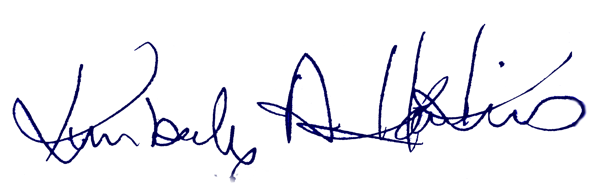 Kimberly A Hoskins